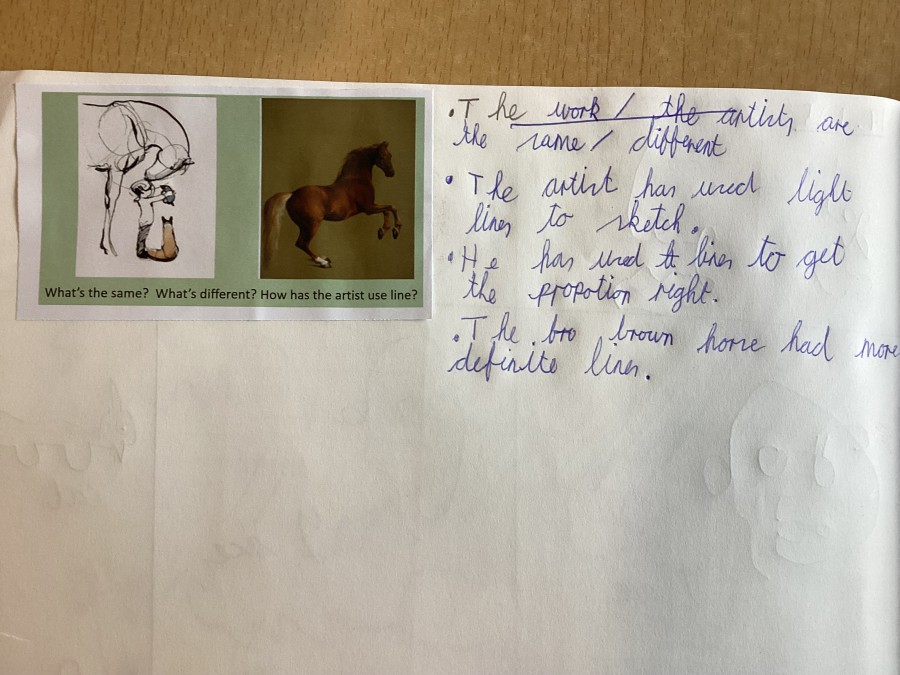 What's the same? What's different? How has the artist use line?
• The work / the artists are
the same / different
• The artist has used light
lines to sketch.
• He has used t lines to get
the propotion right.
• The bro brown horse had more
definite lines.